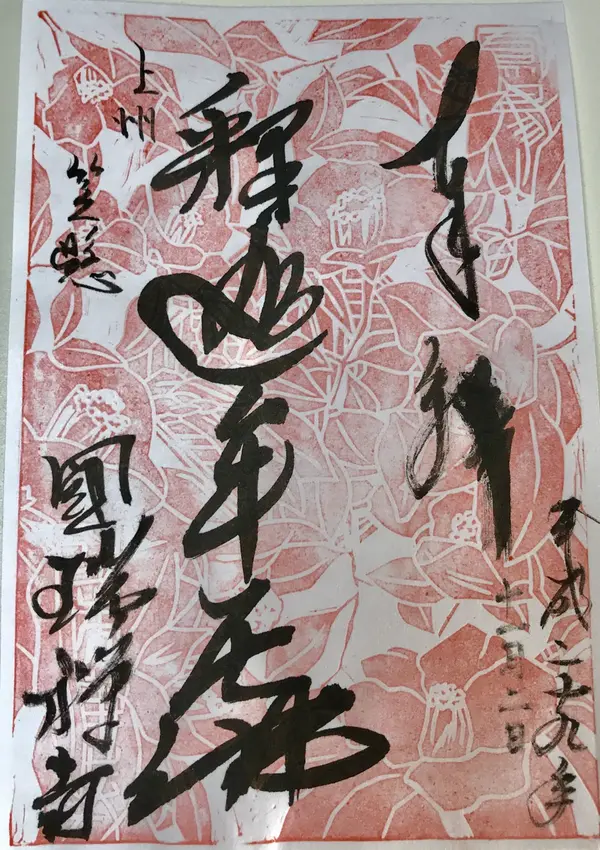 奉拝
平成二十九年
十一月二日
釋迦牟尼佛
上州
笠懸
國瑞禅寺